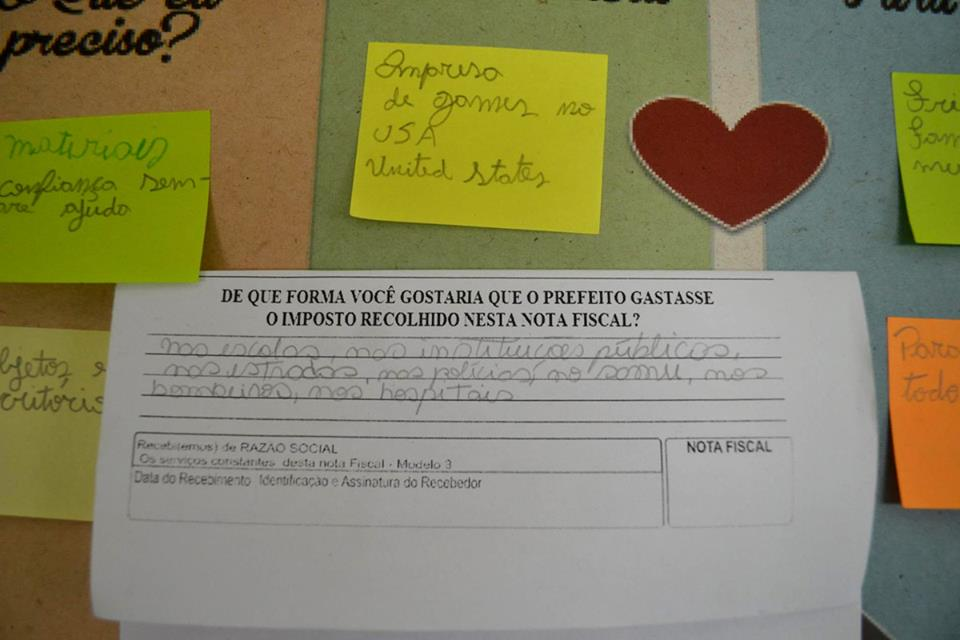 preciso?
Para
materiais
confiança sem-
pre ajuda
Empresa
de games no
USA
United States
Fri
fam
mu
bjetos e
critorio
Para
todo
DE QUE FORMA VOCÊ GOSTARIA QUE O PREFEITO GASTASSE
O IMPOSTO RECOLHIDO NESTA NOTA FISCAL?
nas escolas, nas instituições públicas,
nas estradas, nas polícias, no samu, nos
bombeiros, nos hospitais
Recebi(emos) de RAZÃO SOCIAL
Os serviços constantes desta nota Fiscal - Modelo 3
Data do Recebimento Identificação e Assinatura do Recebedor
NOTA FISCAL